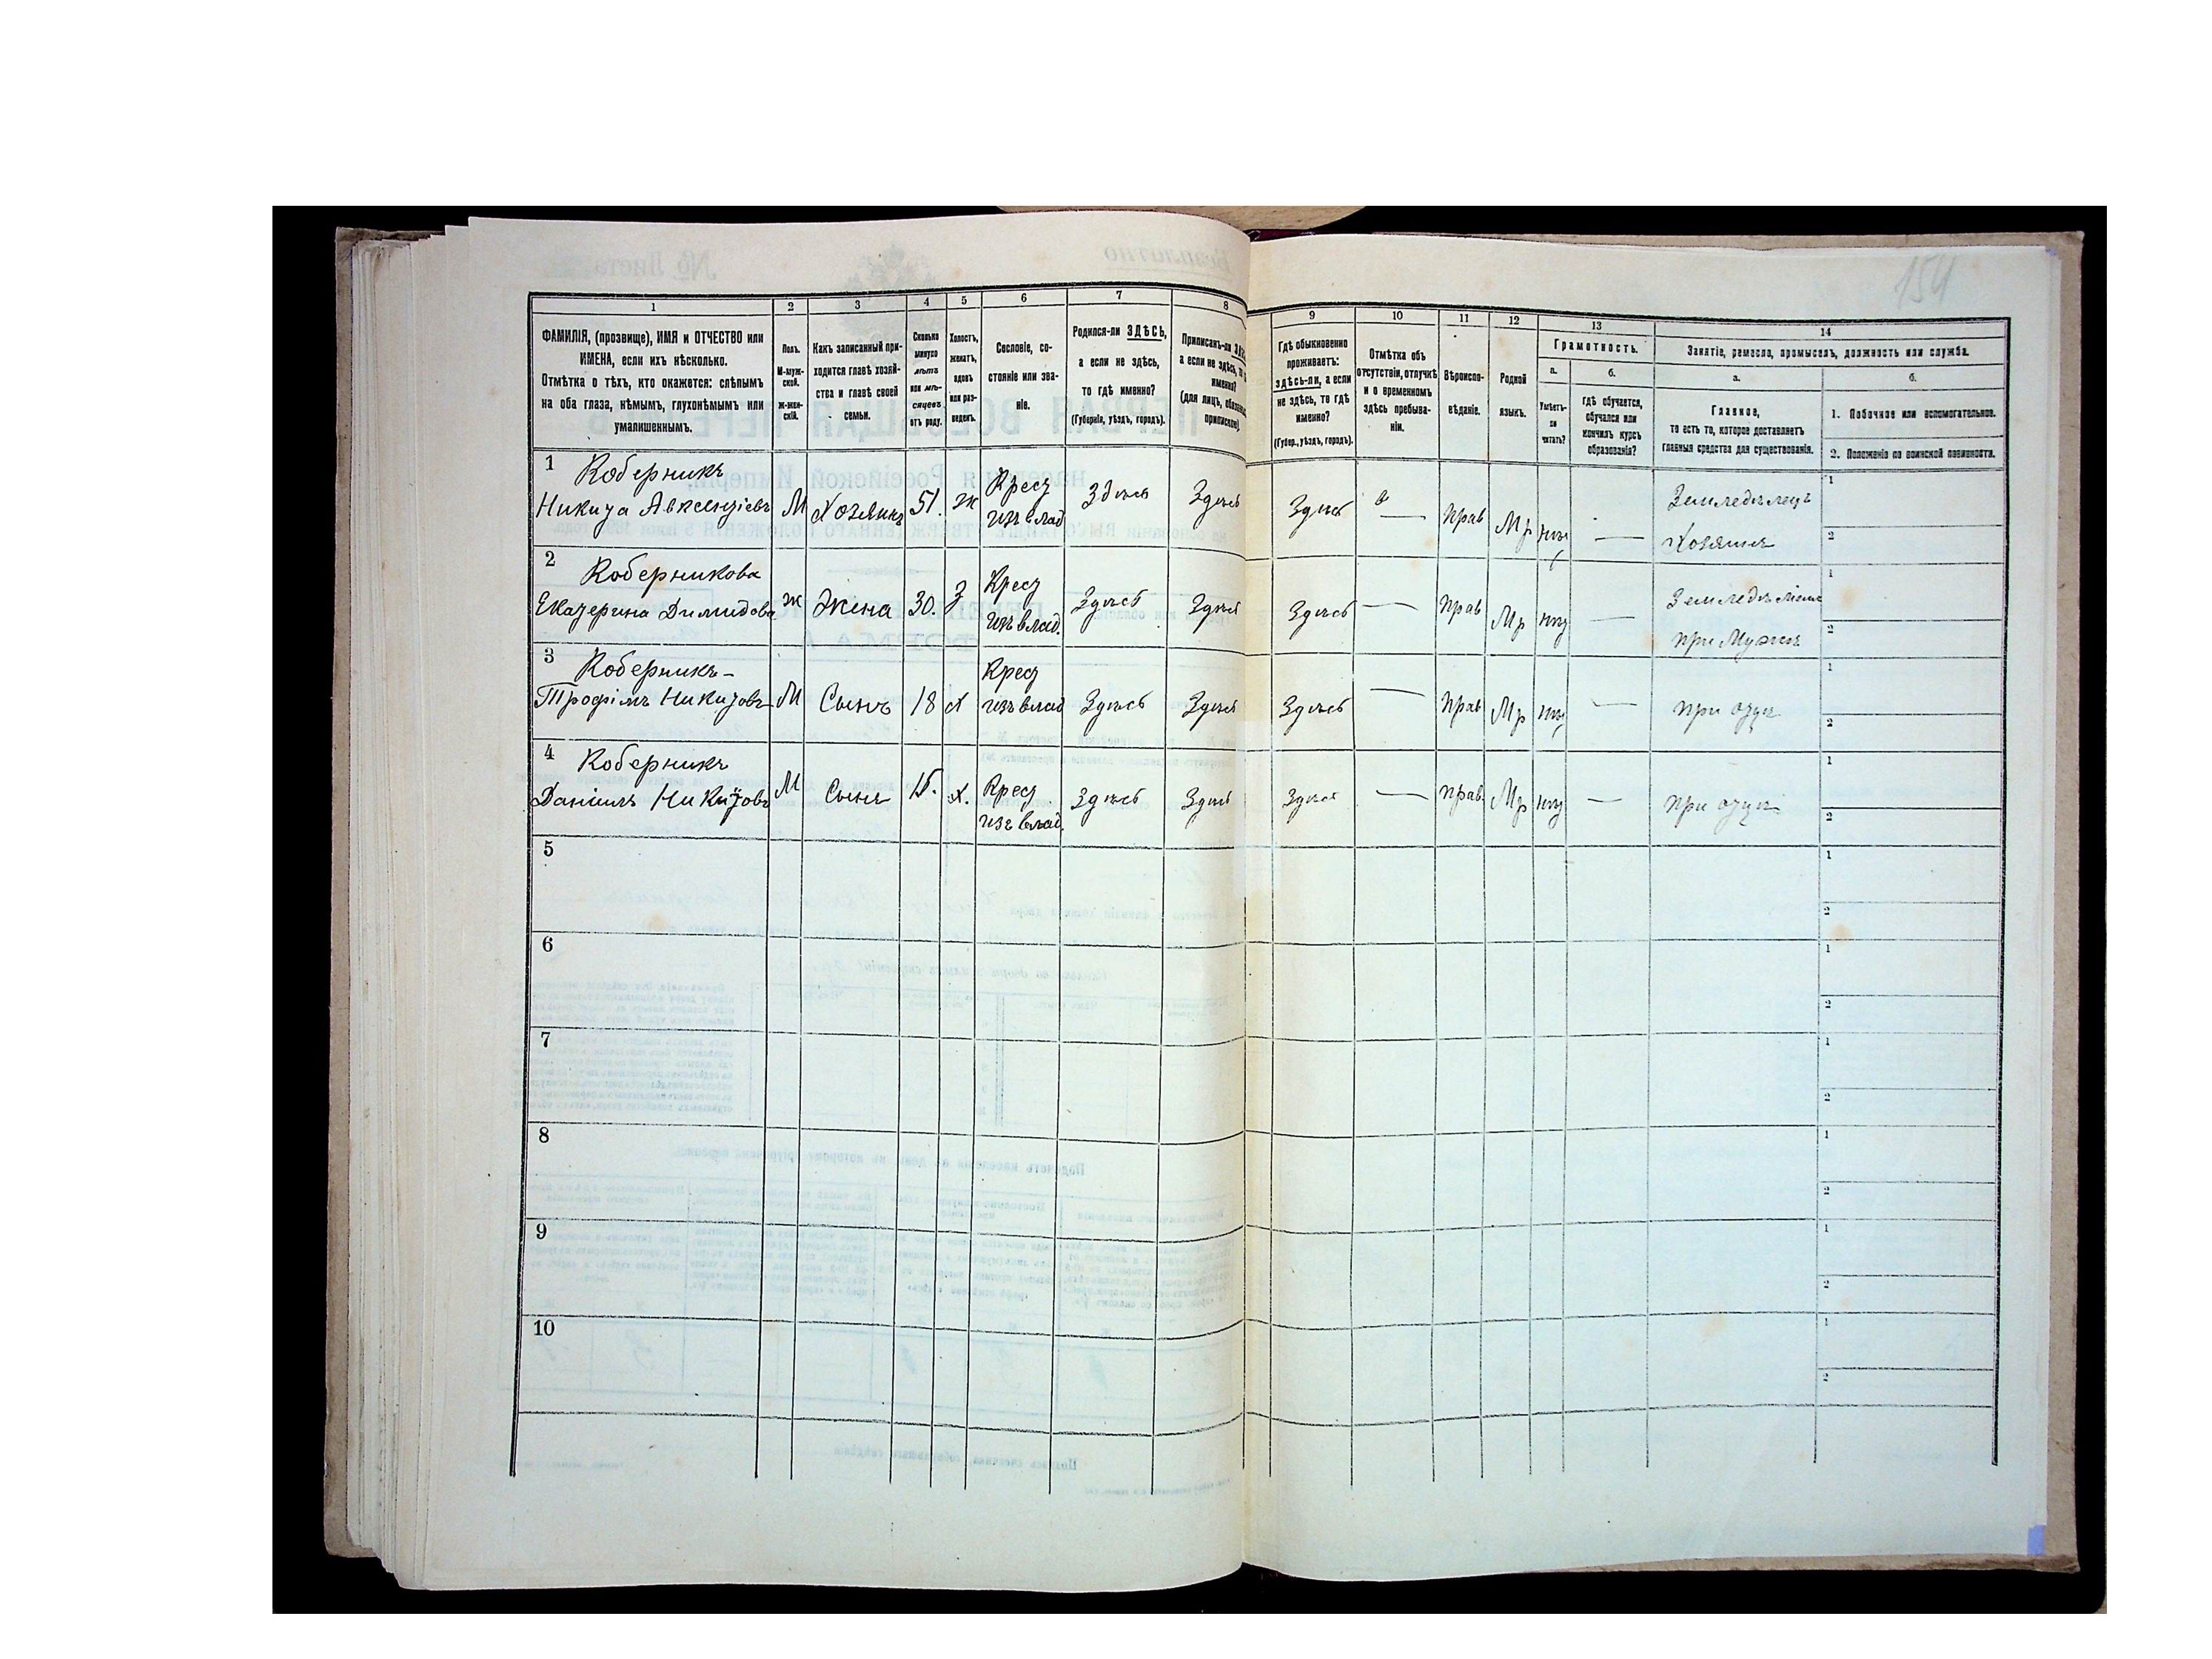 154
1 2 3 4 5 6 7 8 9 10 11 12 13 14
ФАМИЛІЯ, (прозвище), ИМЯ и ОТЧЕСТВО или
ИМЕНА, если ихъ нѣсколько.
Отмѣтка о тѣхъ, кто окажется: слѣпымъ
на оба глаза, нѣмымъ, глухонѣмымъ или
умалишеннымъ.
Полъ.
М-муж-
ской.
Ж-жен-
скій.
Какъ записанный при-
ходится главѣ хозяй-
ства и главѣ своей
семьи.
Сколько
минуло
лѣтъ
или мѣ-
сяцевъ
отъ роду.
Холостъ,
женатъ,
вдовъ
или раз-
веденъ.
Сословіе, со-
стояніе или зва-
ніе.
Родился-ли ЗДѢСЬ,
а если не здѣсь,
то гдѣ именно?
(Губернія, уѣздъ, городъ).
Приписанъ-ли
а если не здѣсь, то
именно?
(для лицъ,
припискою).
Гдѣ обыкновенно
проживаетъ:
здѣсь-ли, а если
не здѣсь, то гдѣ
именно?
(Губер., уѣздъ, городъ).
Отмѣтка объ
отсутствіи, отлучкѣ
и о временномъ
здѣсь пребыва-
ніи.
Вѣроиспо-
вѣданіе.
Родной
языкъ.
Грамотность.
а.
Умѣетъ-
ли
читать?
б.
гдѣ обучается,
обучался или
кончилъ курсъ
образованія?
Занятіе, ремесло, промыселъ, должность или служба.
а.
Главное,
то есть то, которое доставляетъ
главныя средства для существованія.
б.
1. Побочное или вспомогательное.
2. Положеніе по воинской повинности.
1 Коберникъ
Никита Авксентіевъ М Хозяинъ 51. ж Крест
изъ влад Здѣсь Здѣсь Здѣсь — Прав Мр нѣт — Земледѣлецъ
Хозяинъ
1
2
2 Коберникова
Екатерина Димидова ж Жена 30. З Крест
изъ влад. Здѣсь Здѣсь Здѣсь — Прав Мр нѣт —
при Мужѣ
1
2
3 Коберникъ-
Трофімъ Никитовъ М Сынъ 18 х Крест
изъ влад Здѣсь Здѣсь Здѣсь — Прав Мр нѣт — при отцѣ
1
2
4 Коберникъ
Даніилъ Никитовъ М Сынъ 15. х. Крест
изъ влад. Здѣсь Здѣсь Здѣсь — Прав. Мр нѣт — при отцѣ
1
2
5
1
2
6
1
2
7
1
2
8
1
2
9
1
2
10
1
2